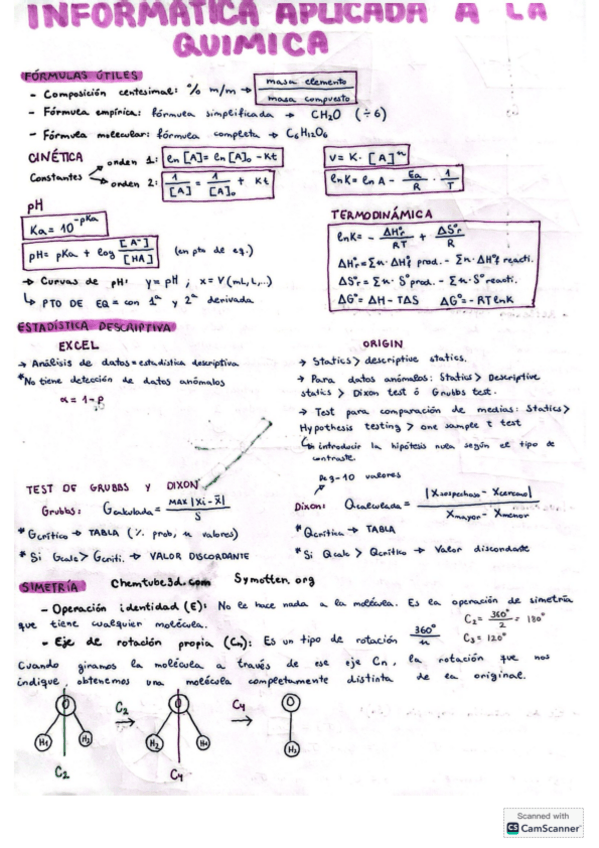 INFORMATICA APLICADA A LA
QUIMICA
FÓRMULAS ÚTILES
- Composición centesimal: % m/m → masa elemento / masa compuesto
- Fórmula empírica: fórmula simplificada → CH2O (÷6)
- Fórmula molecular: fórmula completa → C6H12O6
CINÉTICA
Constantes
orden 1: ln [A] = ln [A]o - Kt
orden 2: 1/[A] = 1/[A]o + Kt
V = K · [A]^n
lnK = ln A - Ea/R · 1/T
pH
Ka = 10^-pKa
pH = pKa + log [A-]/[HA] (en pto de eq.)
→ Curvas de pH: y = pH ; x = V (mL, L,..)
↳ PTO DE EQ = con 1ª y 2ª derivada
TERMODINÁMICA
lnK = - ΔHºr/RT + ΔSºr/R
ΔHºr = Σn · ΔHºf prod. - Σn · ΔHºf reacti.
ΔSºr = Σn · Sº prod. - Σn · Sº reacti.
ΔGº = ΔH - TΔS ΔGº = - RT lnK
ESTADÍSTICA DESCRIPTIVA
EXCEL
→ Análisis de datos = estadística descriptiva
*No tiene detección de datos anómalos
α = 1 - p
ORIGIN
→ Statics > descriptive statics.
→ Para datos anómalos: Statics > Descriptive
statics > Dixon test ó Grubbs test.
→ Test para comparación de medias: Statics >
Hypothesis testing > one sample t test
↳ introducir la hipótesis nula según el tipo de
contraste.
TEST DE GRUBBS Y DIXON
Grubbs: Gcalculada = MAX |Xi - x̄| / S
* Gcrítico → TABLA (% prob, n valores)
* Si Gcalc > Gcriti. → VALOR DISCORDANTE
De 3-10 valores
Dixon: Qcalculada = |Xsospechoso - Xcercano| / Xmayor - Xmenor
* Qcrítica → TABLA
* Si Qcalc > Qcrítico → Valor discordante
SIMETRÍA Chemtube3d.com Symotter.org
- Operación identidad (E): No le hace nada a la molécula. Es la operación de simetría
que tiene cualquier molécula.
- Eje de rotación propia (Cn): Es un tipo de rotación 360º/n
C2 = 360º/2 = 180º
C3 = 120º
Cuando giramos la molécula a través de ese eje Cn, la rotación que nos
indique, obtenemos una molécula completamente distinta de la original.
O C2 O C4 O
H1 H2 H2 H1 H2
C2 C4
Scanned with
CS CamScanner